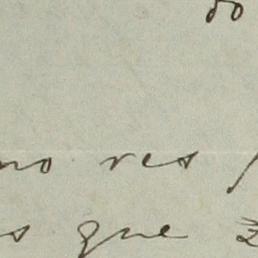 do
no res
s que